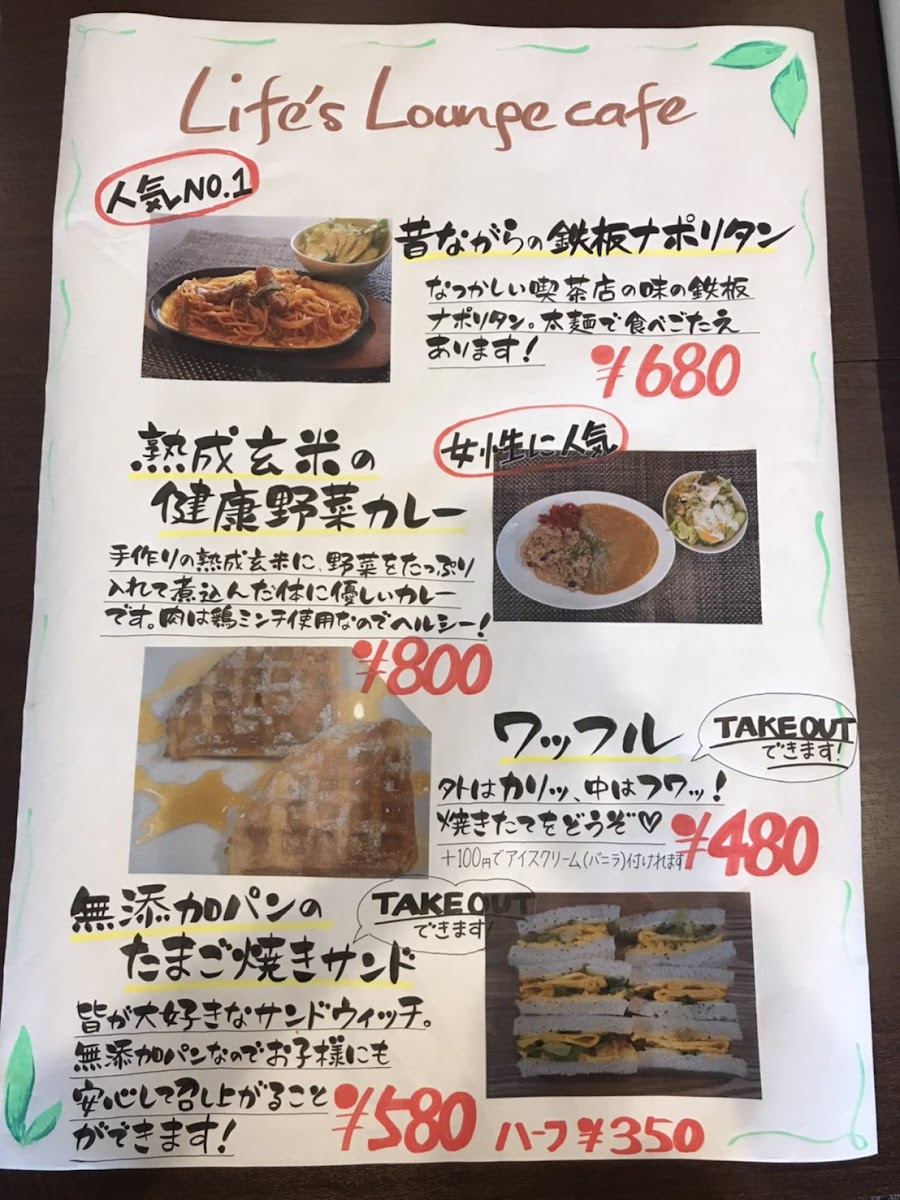 Life's Lounge cafe
人気NO.1
昔ながらの鉄板ナポリタン
なつかしい喫茶店の味の鉄板
ナポリタン。太麺で食べごたえ
あります!
¥680
女性に人気
熟成玄米の
健康野菜カレー
手作りの熟成玄米に、野菜をたっぷり
入れて煮込んだ体に優しいカレー
です。肉は鶏ミンチ使用なのでヘルシー!
¥800
ワッフル
TAKE OUT
できます!
外はカリッ、中はフワッ!
焼きたてをどうぞ♡
¥480
+100円でアイスクリーム(バニラ)付けれます
無添加パンの
たまご焼きサンド
TAKE OUT
できます!
皆が大好きなサンドウィッチ。
無添加パンなのでお子様にも
安心して召し上がること
ができます!
¥580
ハーフ ¥350